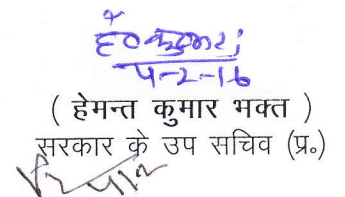 हे० कुमार
4-2-16
( हेमन्त कुमार भक्त )
सरकार के उप सचिव (प्र०)